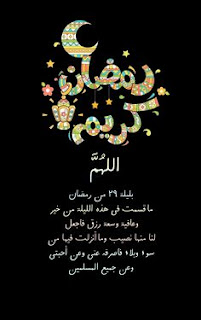 رمضان
كريم
اللهُمَّ
بليلة ٢٩ من رمضان
ما قسمت فى هذه الليلة من خير
وعافية وسعة رزق فاجعل
لنا منها نصيب وما أنزلت فيها من
سوء وبلاء فاصرفه عنى وعن أحبتى
وعن جميع المسلمين